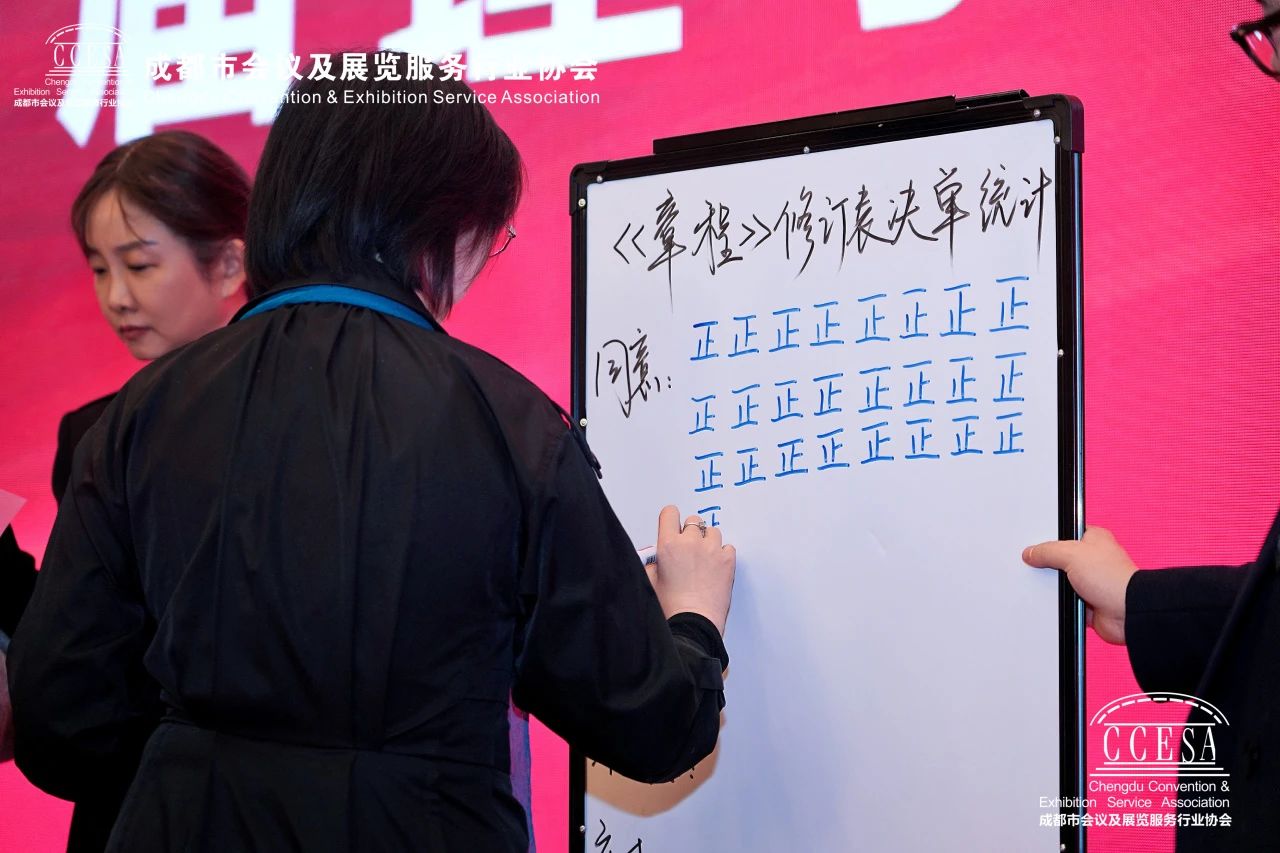 届理
CCESA
Chengdu Convention &
Exhibition Service Association
成都市会议及展览服务行业协会
成都市会议及展览服务行业协会
Convention & Exhibition Service Association
《章程》修订表决单统计
同意:
正正正正正正正正
正正正正正正正正
正正正正正正正正
CCESA
Chengdu Convention &
Exhibition Service Association
成都市会议及展览服务行业协会